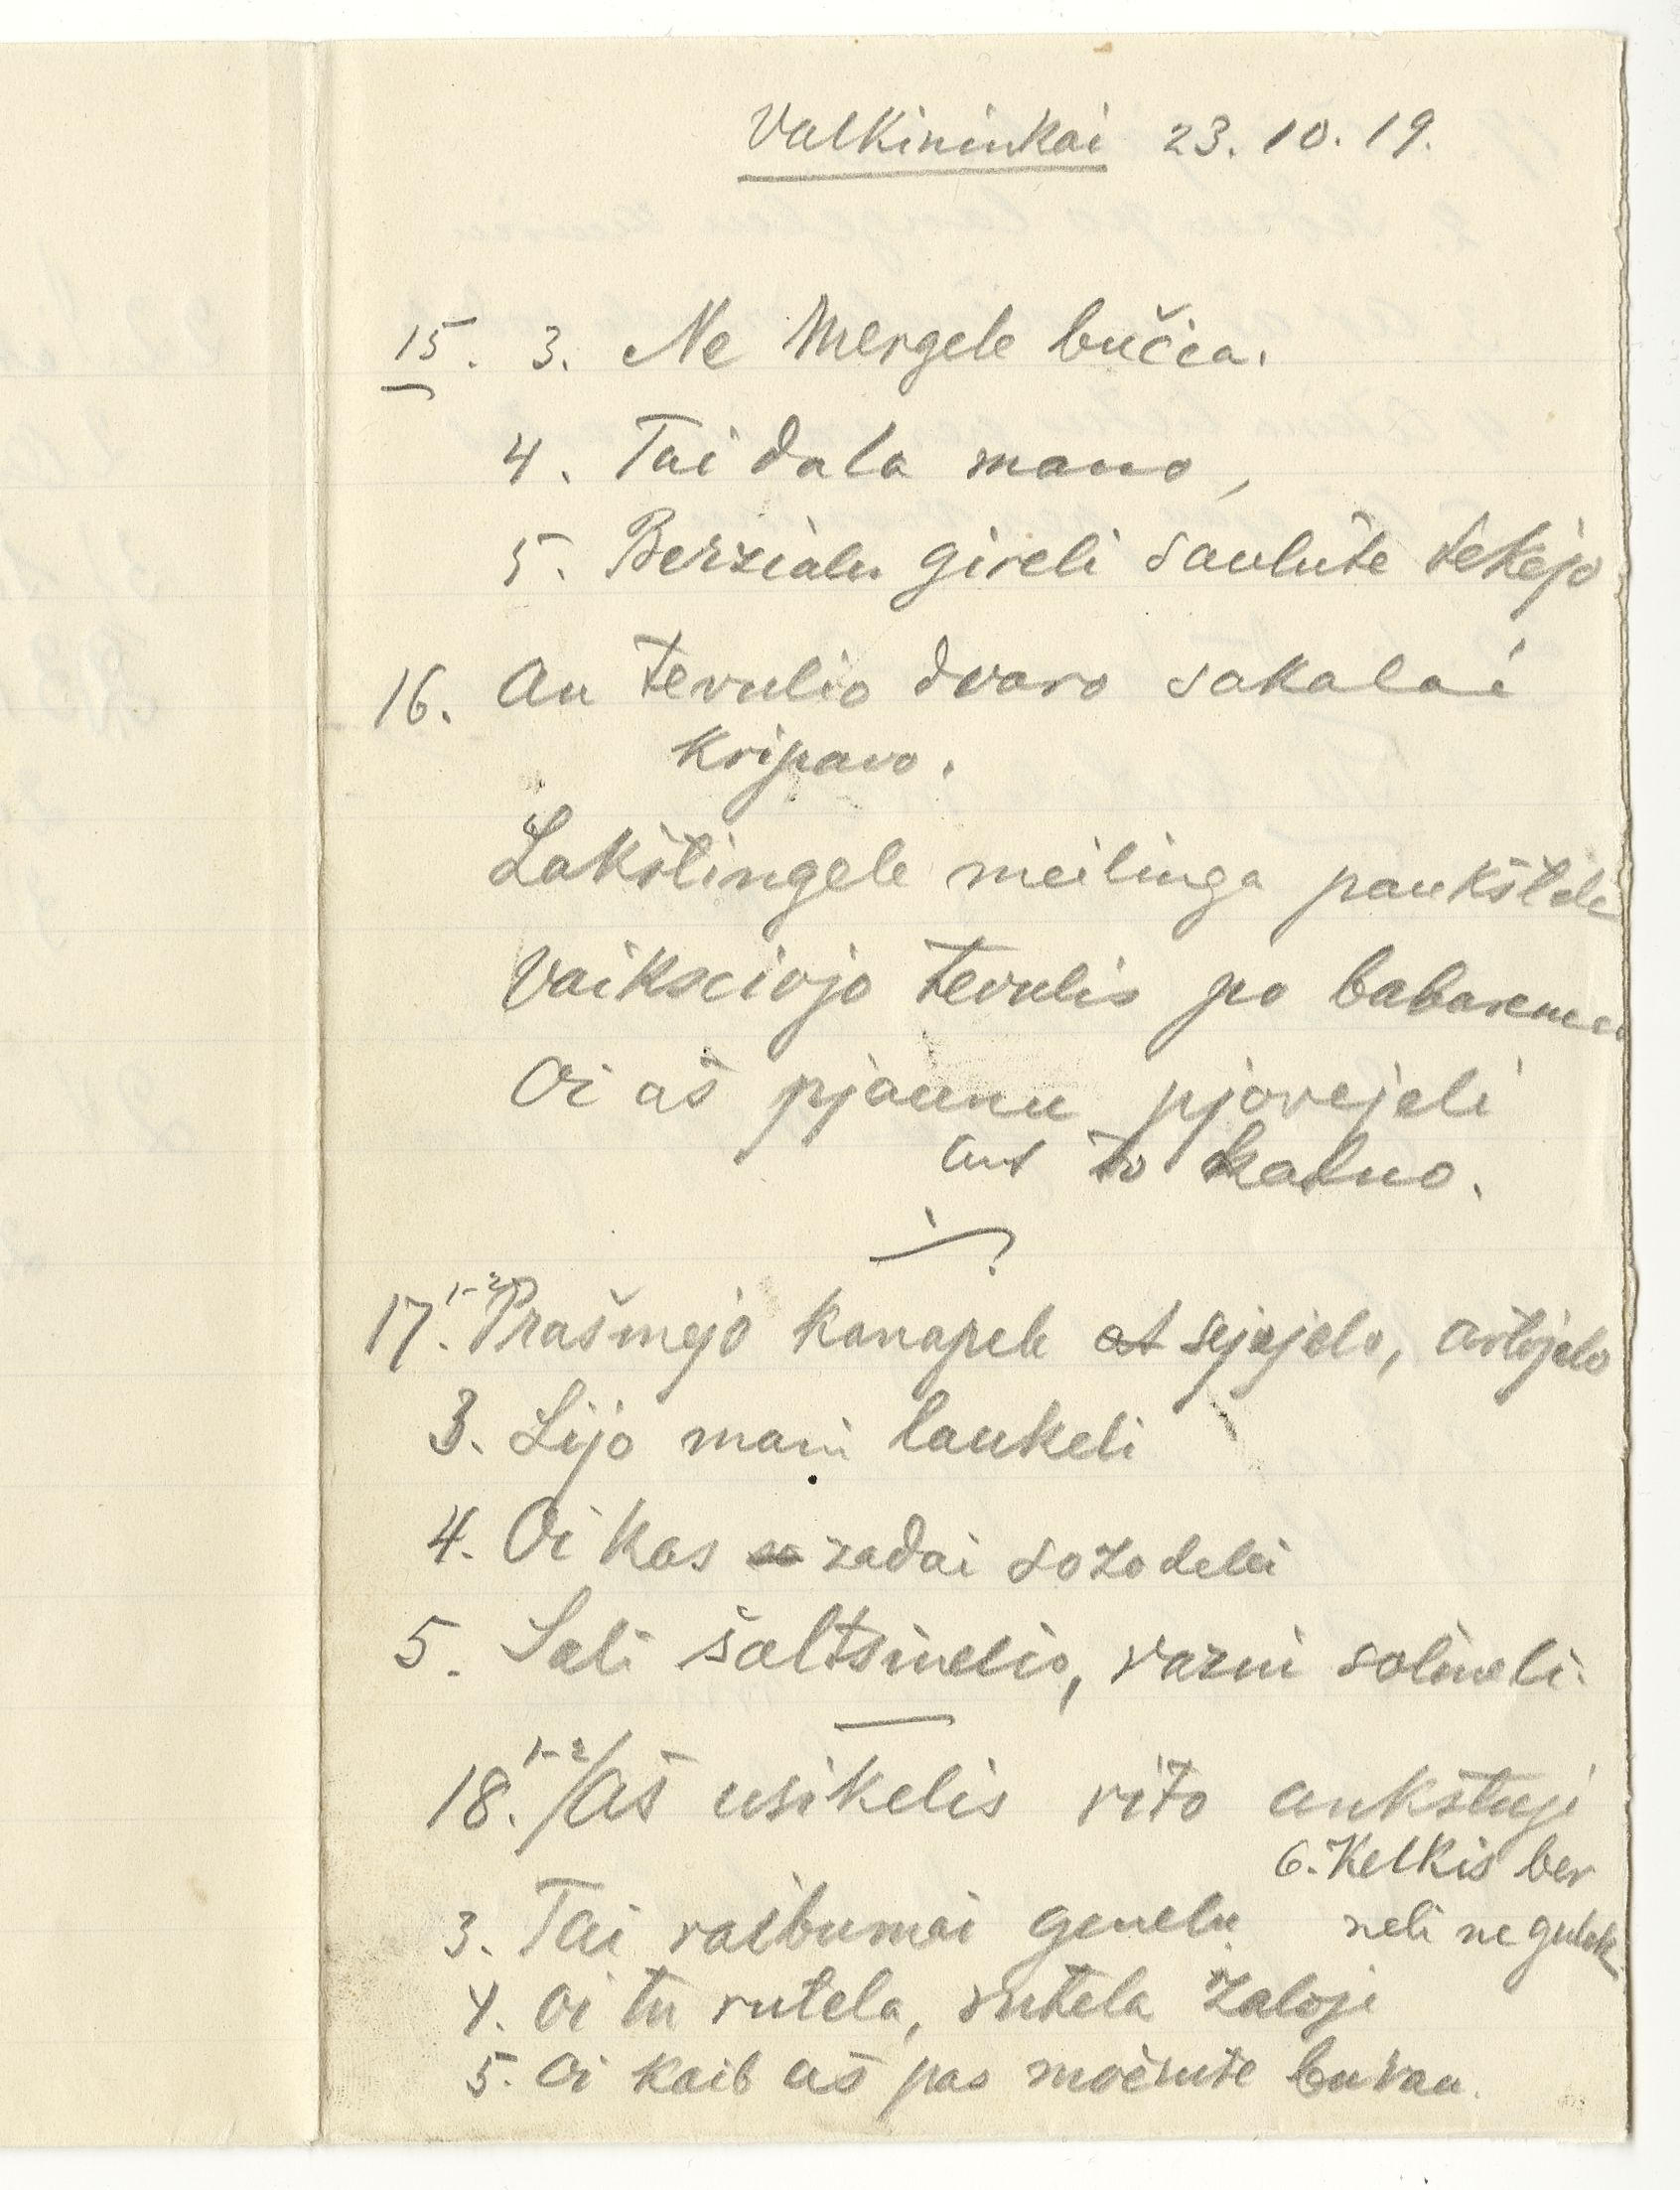 Valkininkai 23. 10. 19.
15. 3. Ne mergele bučia.
4. Tai dala mano,
5. Berzialu gireli saulute tekejo
16. An tevulio dvaro sakalai
kripavo.
Lakštingele meilinga paukštele
Vaiksciojo tevulis po
Oi aš pjaunu pjovejeli
ant to kalno.
17. 1-2) Prašmejo kanapele sejejelo, artojelo
3. Lijo mani laukeli
4. Oi kas zadai sozodelei
5. Sali šaltsinelio, vazni
18. 1-2/ Aš usikelis rito ankstuji
6. Kelkis ber
3. Tai raibumai genelu neli ne gulek
4. Oi tu rutela, rutela žaloji
5. Oi kaib aš pas močiute buvau.